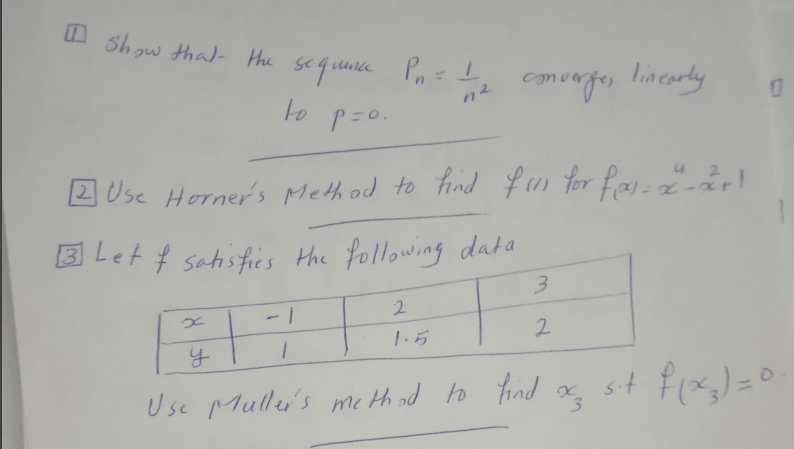 1 Show that the sequence Pn = 1/n² converges linearly
to p=0.
2 Use Horner's Method to find f(1) for f(x) = x⁴-x²+1
3 Let f satisfies the following data
x -1 2 3
y 1 1.5 2
Use Muller's method to find x₃ s.t. f(x₃)=0.